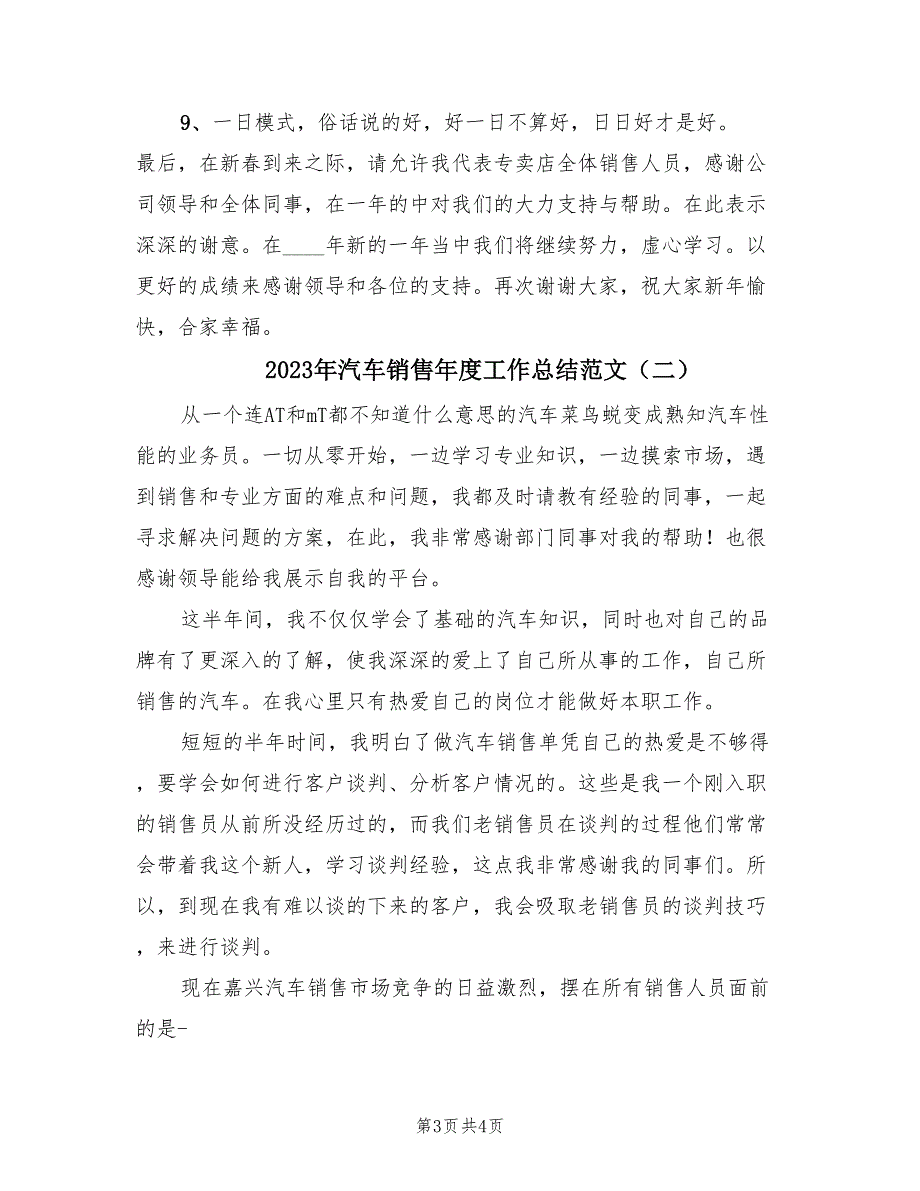 9、一日模式，俗话说的好，好一日不算好，日日好才是好。
最后，在新春到来之际，请允许我代表专卖店全体销售人员，感谢公
司领导和全体同事，在一年的中对我们的大力支持与帮助。在此表示
深深的谢意。在____年新的一年当中我们将继续努力，虚心学习。以
更好的成绩来感谢领导和各位的支持。再次谢谢大家，祝大家新年愉
快，合家幸福。
2023年汽车销售年度工作总结范文（二）
从一个连AT和mT都不知道什么意思的汽车菜鸟蜕变成熟知汽车性
能的业务员。一切从零开始，一边学习专业知识，一边摸索市场，遇
到销售和专业方面的难点和问题，我都及时请教有经验的同事，一起
寻求解决问题的方案，在此，我非常感谢部门同事对我的帮助！也很
感谢领导能给我展示自我的平台。
这半年间，我不仅仅学会了基础的汽车知识，同时也对自己的品
牌有了更深入的了解，使我深深的爱上了自己所从事的工作，自己所
销售的汽车。在我心里只有热爱自己的岗位才能做好本职工作。
短短的半年时间，我明白了做汽车销售单凭自己的热爱是不够得
，要学会如何进行客户谈判、分析客户情况的。这些是我一个刚入职
的销售员从前所没经历过的，而我们老销售员在谈判的过程他们常常
会带着我这个新人，学习谈判经验，这点我非常感谢我的同事们。所
以，到现在我有难以谈的下来的客户，我会吸取老销售员的谈判技巧
，来进行谈判。
现在嘉兴汽车销售市场竞争的日益激烈，摆在所有销售人员面前
的是-
第3页共4页